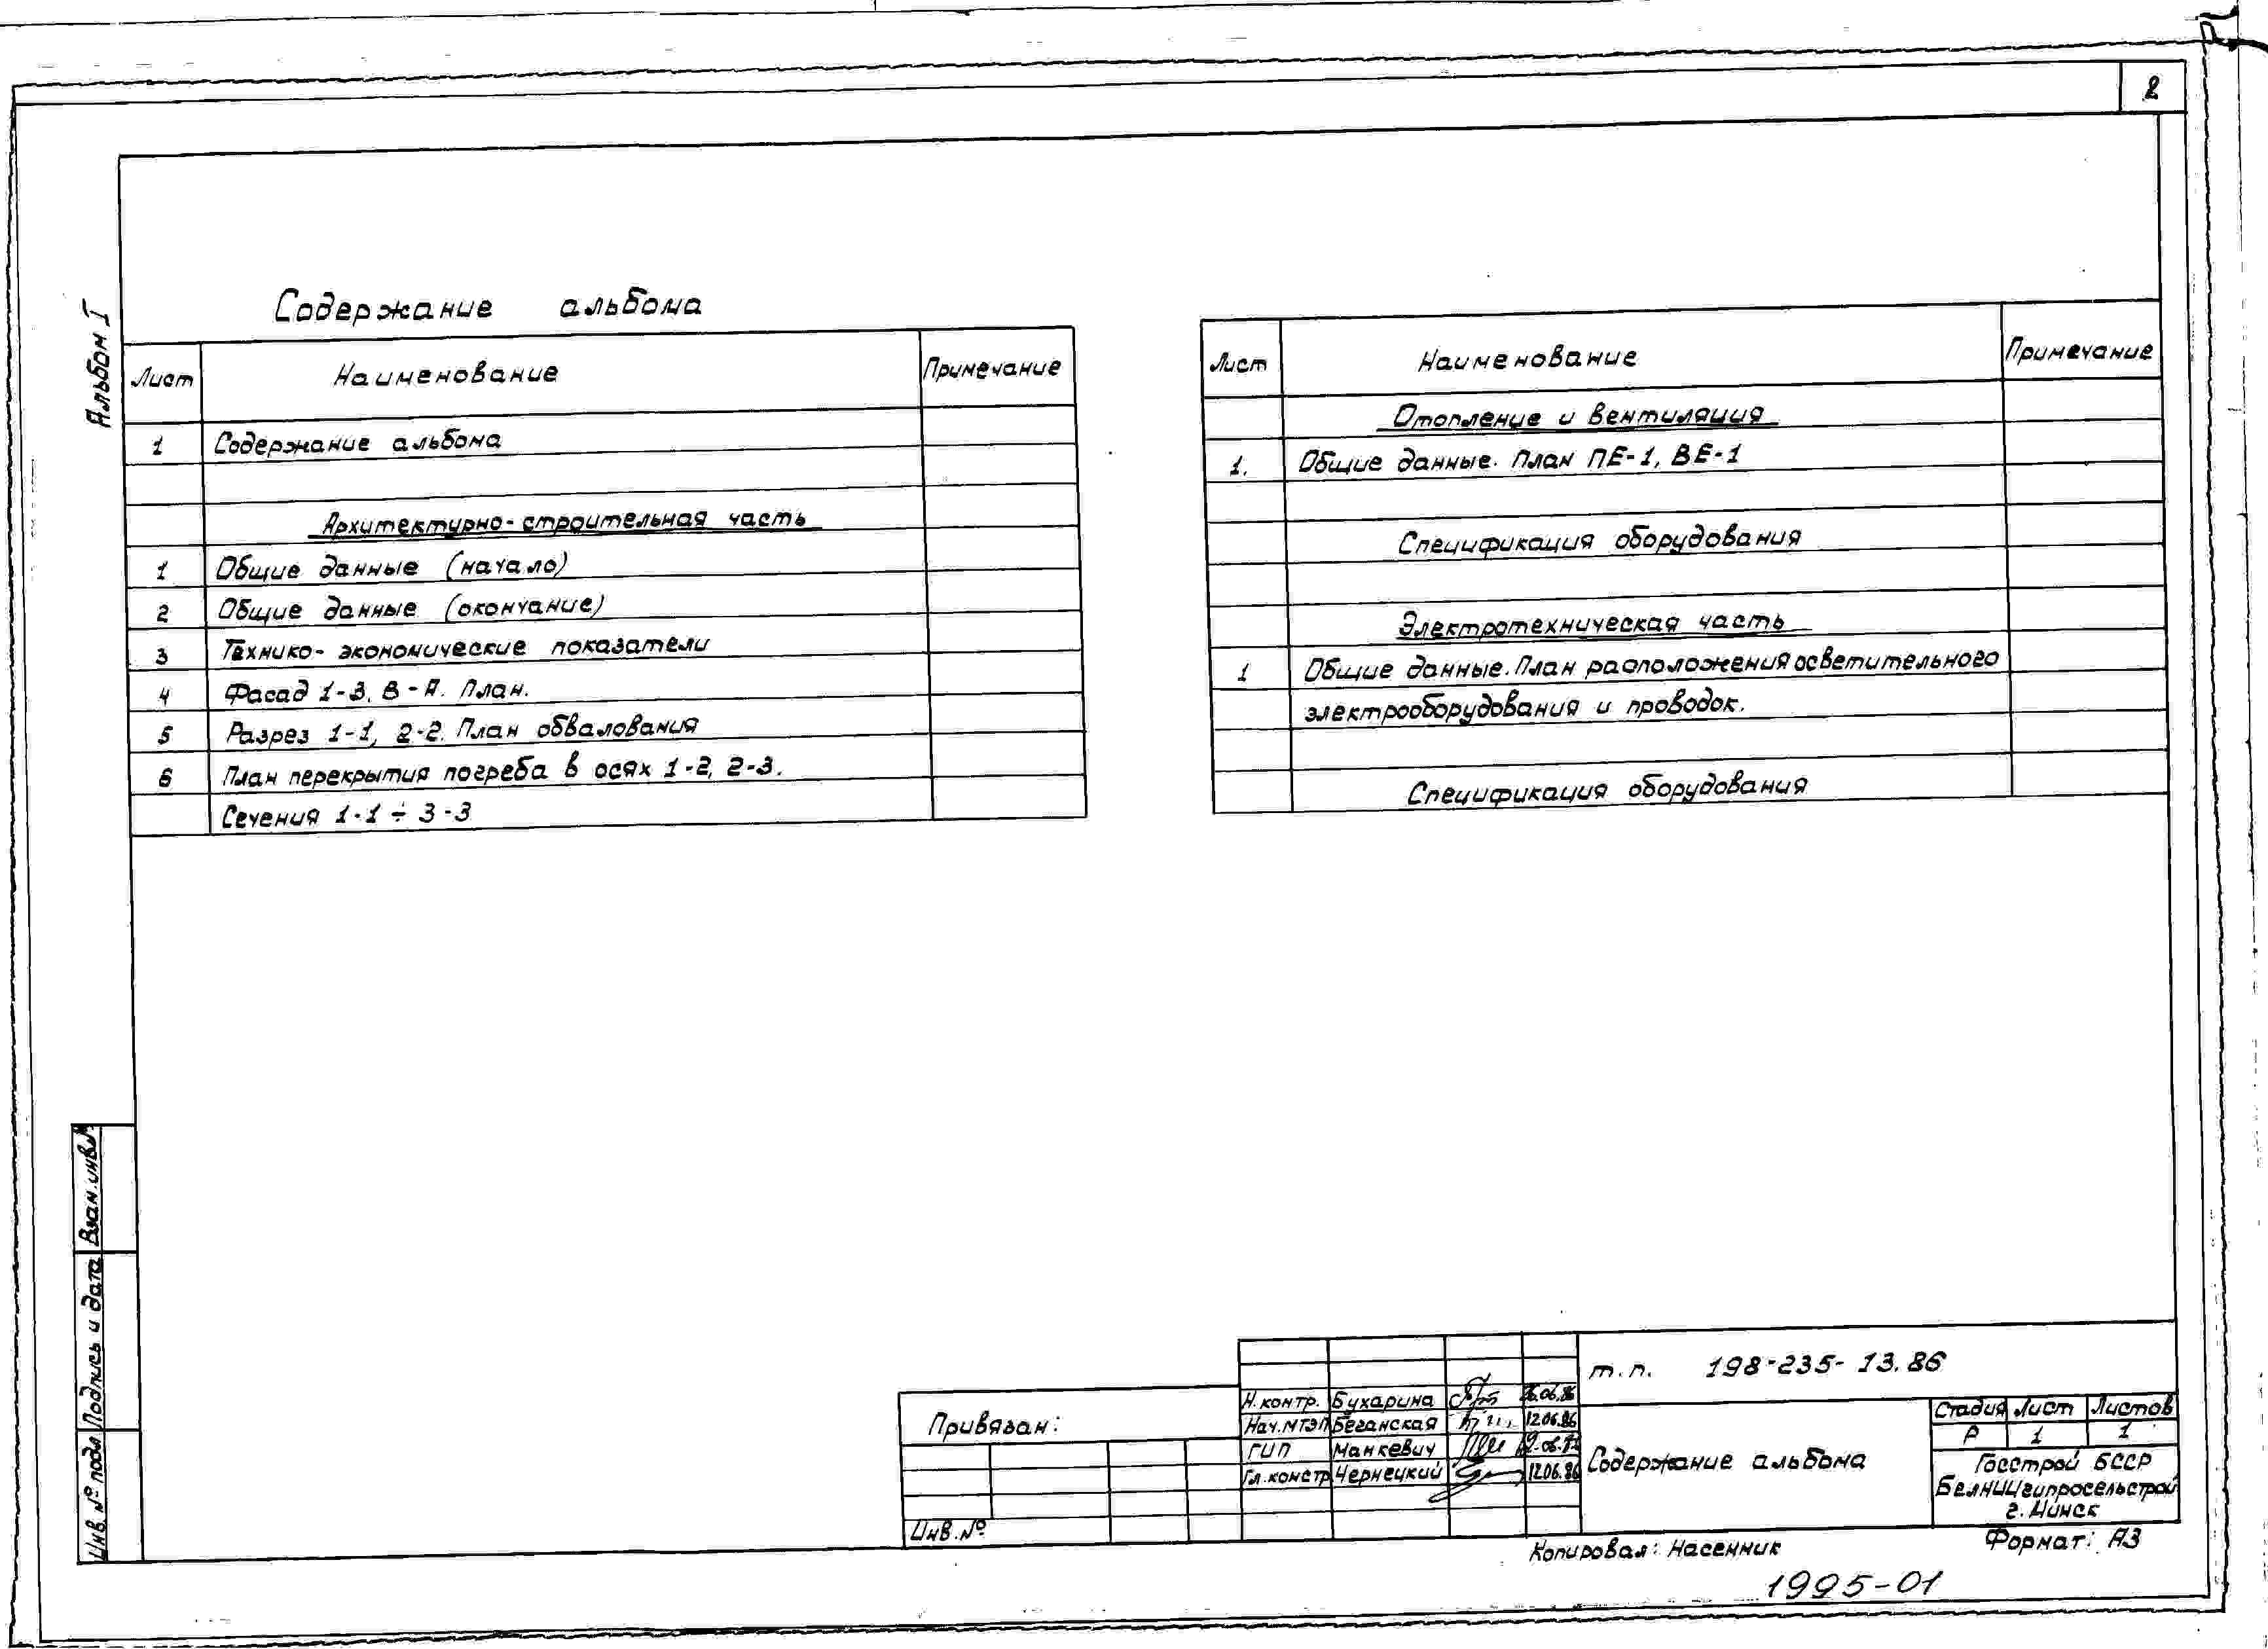 2
Альбом I
Содержание альбома
Лист Наименование Примечание
1 Содержание альбома
Архитектурно-строительная часть
1 Общие данные (начало)
2 Общие данные (окончание)
3 Технико-экономические показатели
4 Фасад 1-3, В-А. План.
5 Разрез 1-1, 2-2. План обвалования
6 План перекрытия погреба в осях 1-2, 2-3.
Сечения 1-1 ÷ 3-3
Лист Наименование Примечание
Отопление и вентиляция
1. Общие данные. План ПЕ-1, ВЕ-1
Спецификация оборудования
Электротехническая часть
1 Общие данные. План расположения осветительного
электрооборудования и проводок.
Спецификация оборудования
Взам. инв. №
Подпись и дата
Инв. № подл
Привязан:
Инв. №
Н. контр. Бухарина 06.86
Нач. МТЭП Беганская 12.06.86
ГИП Манкевич
Гл. констр. Чернецкий 12.06.86
т.п. 198-235-13.86
Содержание альбома
Стадия Лист Листов
Р 1 1
Госстрой БССР
БелНИИгипросельстрой
г. Минск
Копировал: Насенник
Формат: А3
1995-01